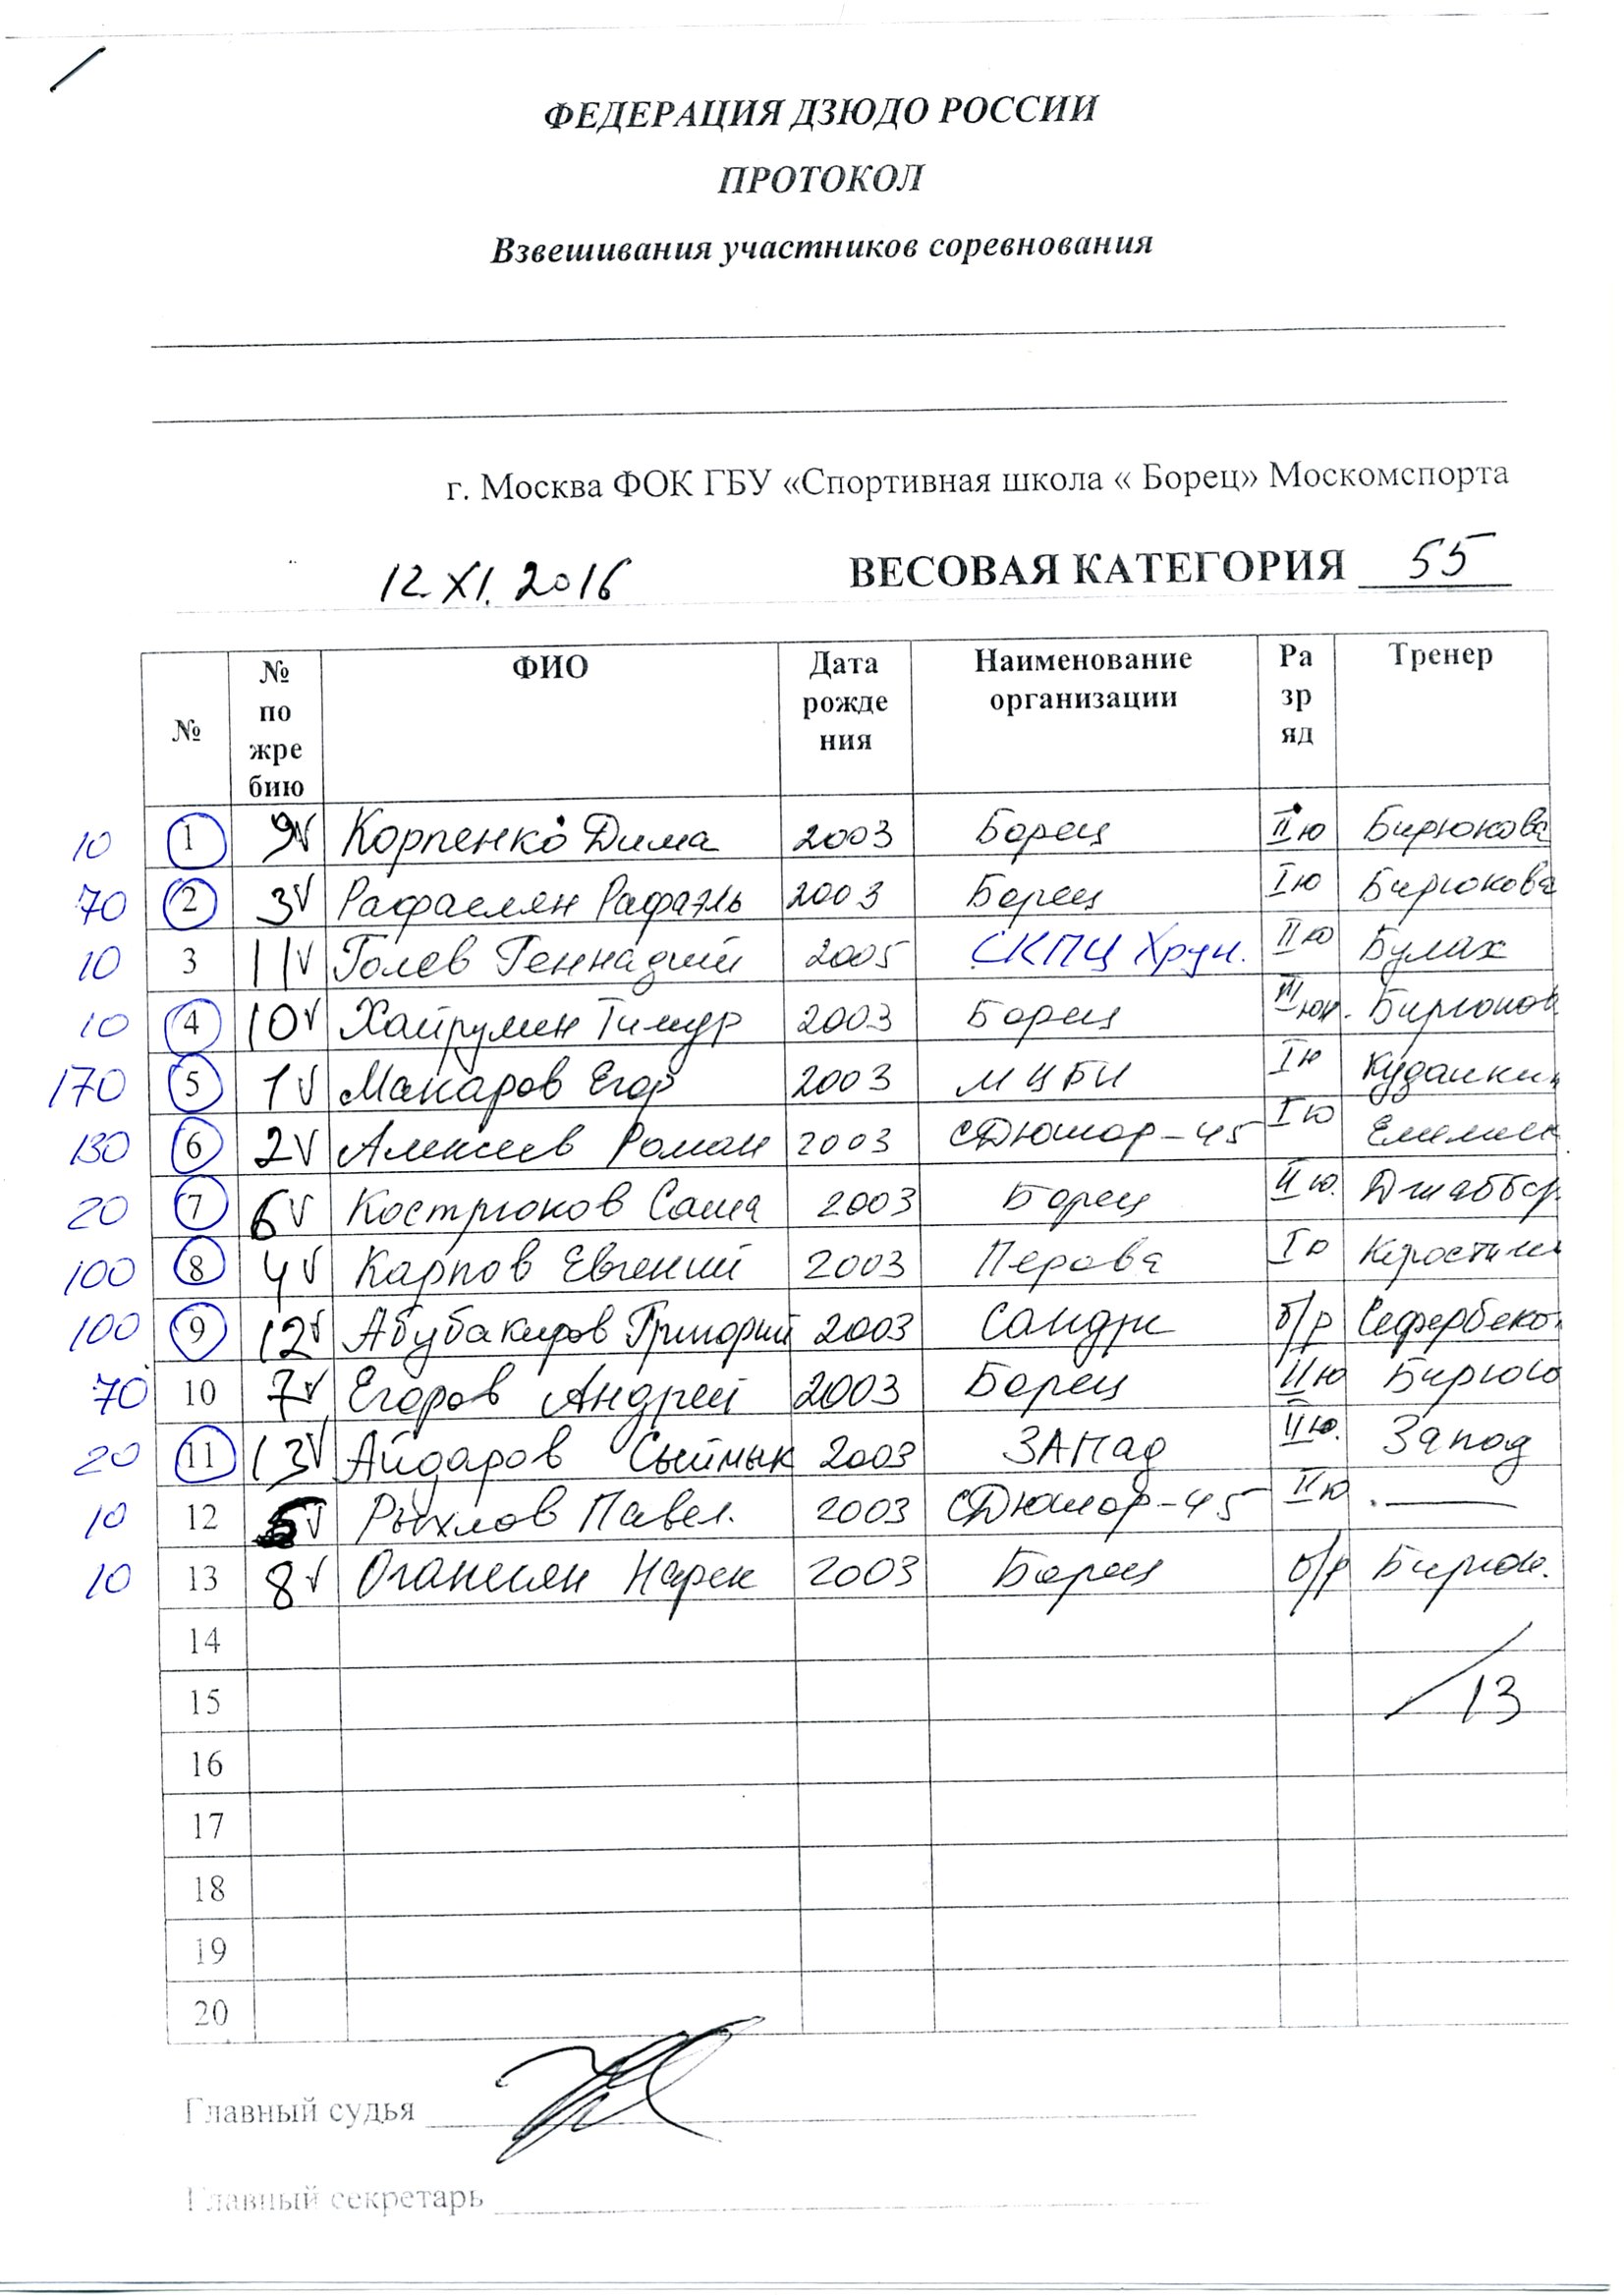 ФЕДЕРАЦИЯ ДЗЮДО РОССИИ
ПРОТОКОЛ
Взвешивания участников соревнования
г. Москва ФОК ГБУ «Спортивная школа « Борец» Москомспорта
12.XI.2016 ВЕСОВАЯ КАТЕГОРИЯ 55
№ № по жре бию ФИО Дата рожде ния Наименование организации Ра зр яд Тренер
10 1 9v Корпенко Дима 2003 Борец IIю Бирюкова
70 2 3v Рафаелян Рафаэль 2003 Борец Iю Бирюкова
10 3 11v Голев Геннадий 2005 СКПЦ Хрун. IIю Булах
10 4 10v Хайрумен Тимур 2003 Борец IIIюн. Бирюков
170 5 1v Макаров Егор 2003 МЦБИ Iю
130 6 2v Алексеев Роман 2003 СДюшор-45 Iю
20 7 6v Кострюков Саша 2003 Борец IIю. Джаббар.
100 8 4v Карпов Евгений 2003 Перова Iю
100 9 12v Абубакиров Григорий 2003 Самдж б/р Сефербеков
70 10 7v Егоров Андрей 2003 Борец IIю Бирюко
20 11 13v Айдаров Сыймык 2003 ЗАПад IIю. Запод
10 12 5v Рыхлов Павел. 2003 СДюшор-45 IIю. —
10 13 8v Оганесян Нарек 2003 Борец б/р Бирюк.
14
15 /13
16
17
18
19
20
Главный судья
Главный секретарь